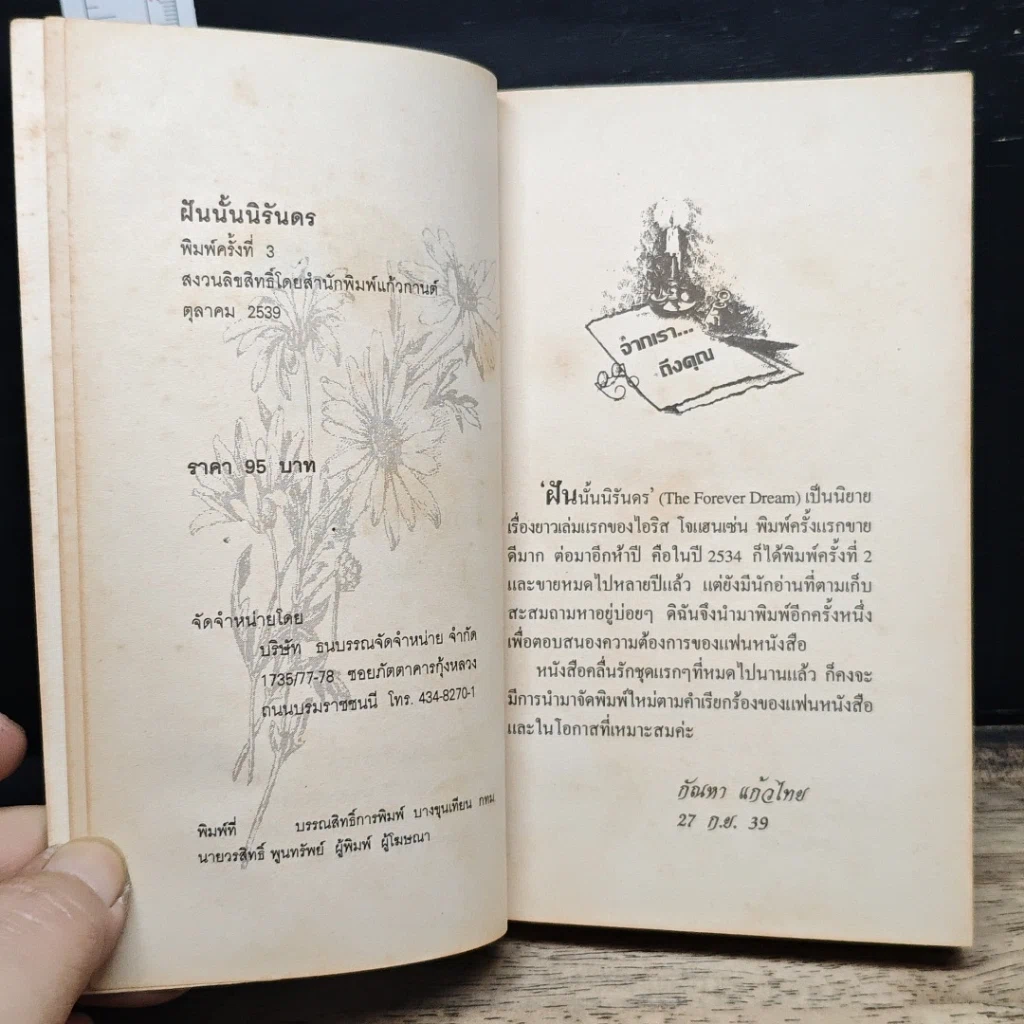 ฝันนั้นนิรันดร
พิมพ์ครั้งที่ 3
สงวนลิขสิทธิ์โดยสำนักพิมพ์แก้วกานต์
ตุลาคม 2539
ราคา 95 บาท
จัดจำหน่ายโดย
บริษัท ธนบรรณจัดจำหน่าย จำกัด
1735/77-78 ซอยภัตตาคารกุ้งหลวง
ถนนบรมราชชนนี โทร. 434-8270-1
พิมพ์ที่ บรรณสิทธิ์การพิมพ์ บางขุนเทียน กทม.
นายวรสิทธิ์ พูนทรัพย์ ผู้พิมพ์ ผู้โฆษณา
จากเรา...
ถึงคุณ
'ฝันนั้นนิรันดร' (The Forever Dream) เป็นนิยาย
เรื่องยาวเล่มแรกของไอริส โจแฮนเซ่น พิมพ์ครั้งแรกขาย
ดีมาก ต่อมาอีกห้าปี คือในปี 2534 ก็ได้พิมพ์ครั้งที่ 2
และขายหมดไปหลายปีแล้ว แต่ยังมีนักอ่านที่ตามเก็บ
สะสมถามหาอยู่บ่อยๆ ดิฉันจึงนำมาพิมพ์อีกครั้งหนึ่ง
เพื่อตอบสนองความต้องการของแฟนหนังสือ
หนังสือคลื่นรักชุดแรกๆที่หมดไปนานแล้ว ก็คงจะ
มีการนำมาจัดพิมพ์ใหม่ตามคำเรียกร้องของแฟนหนังสือ
และในโอกาสที่เหมาะสมค่ะ
กัณหา แก้วไทย
27 ก.ย. 39